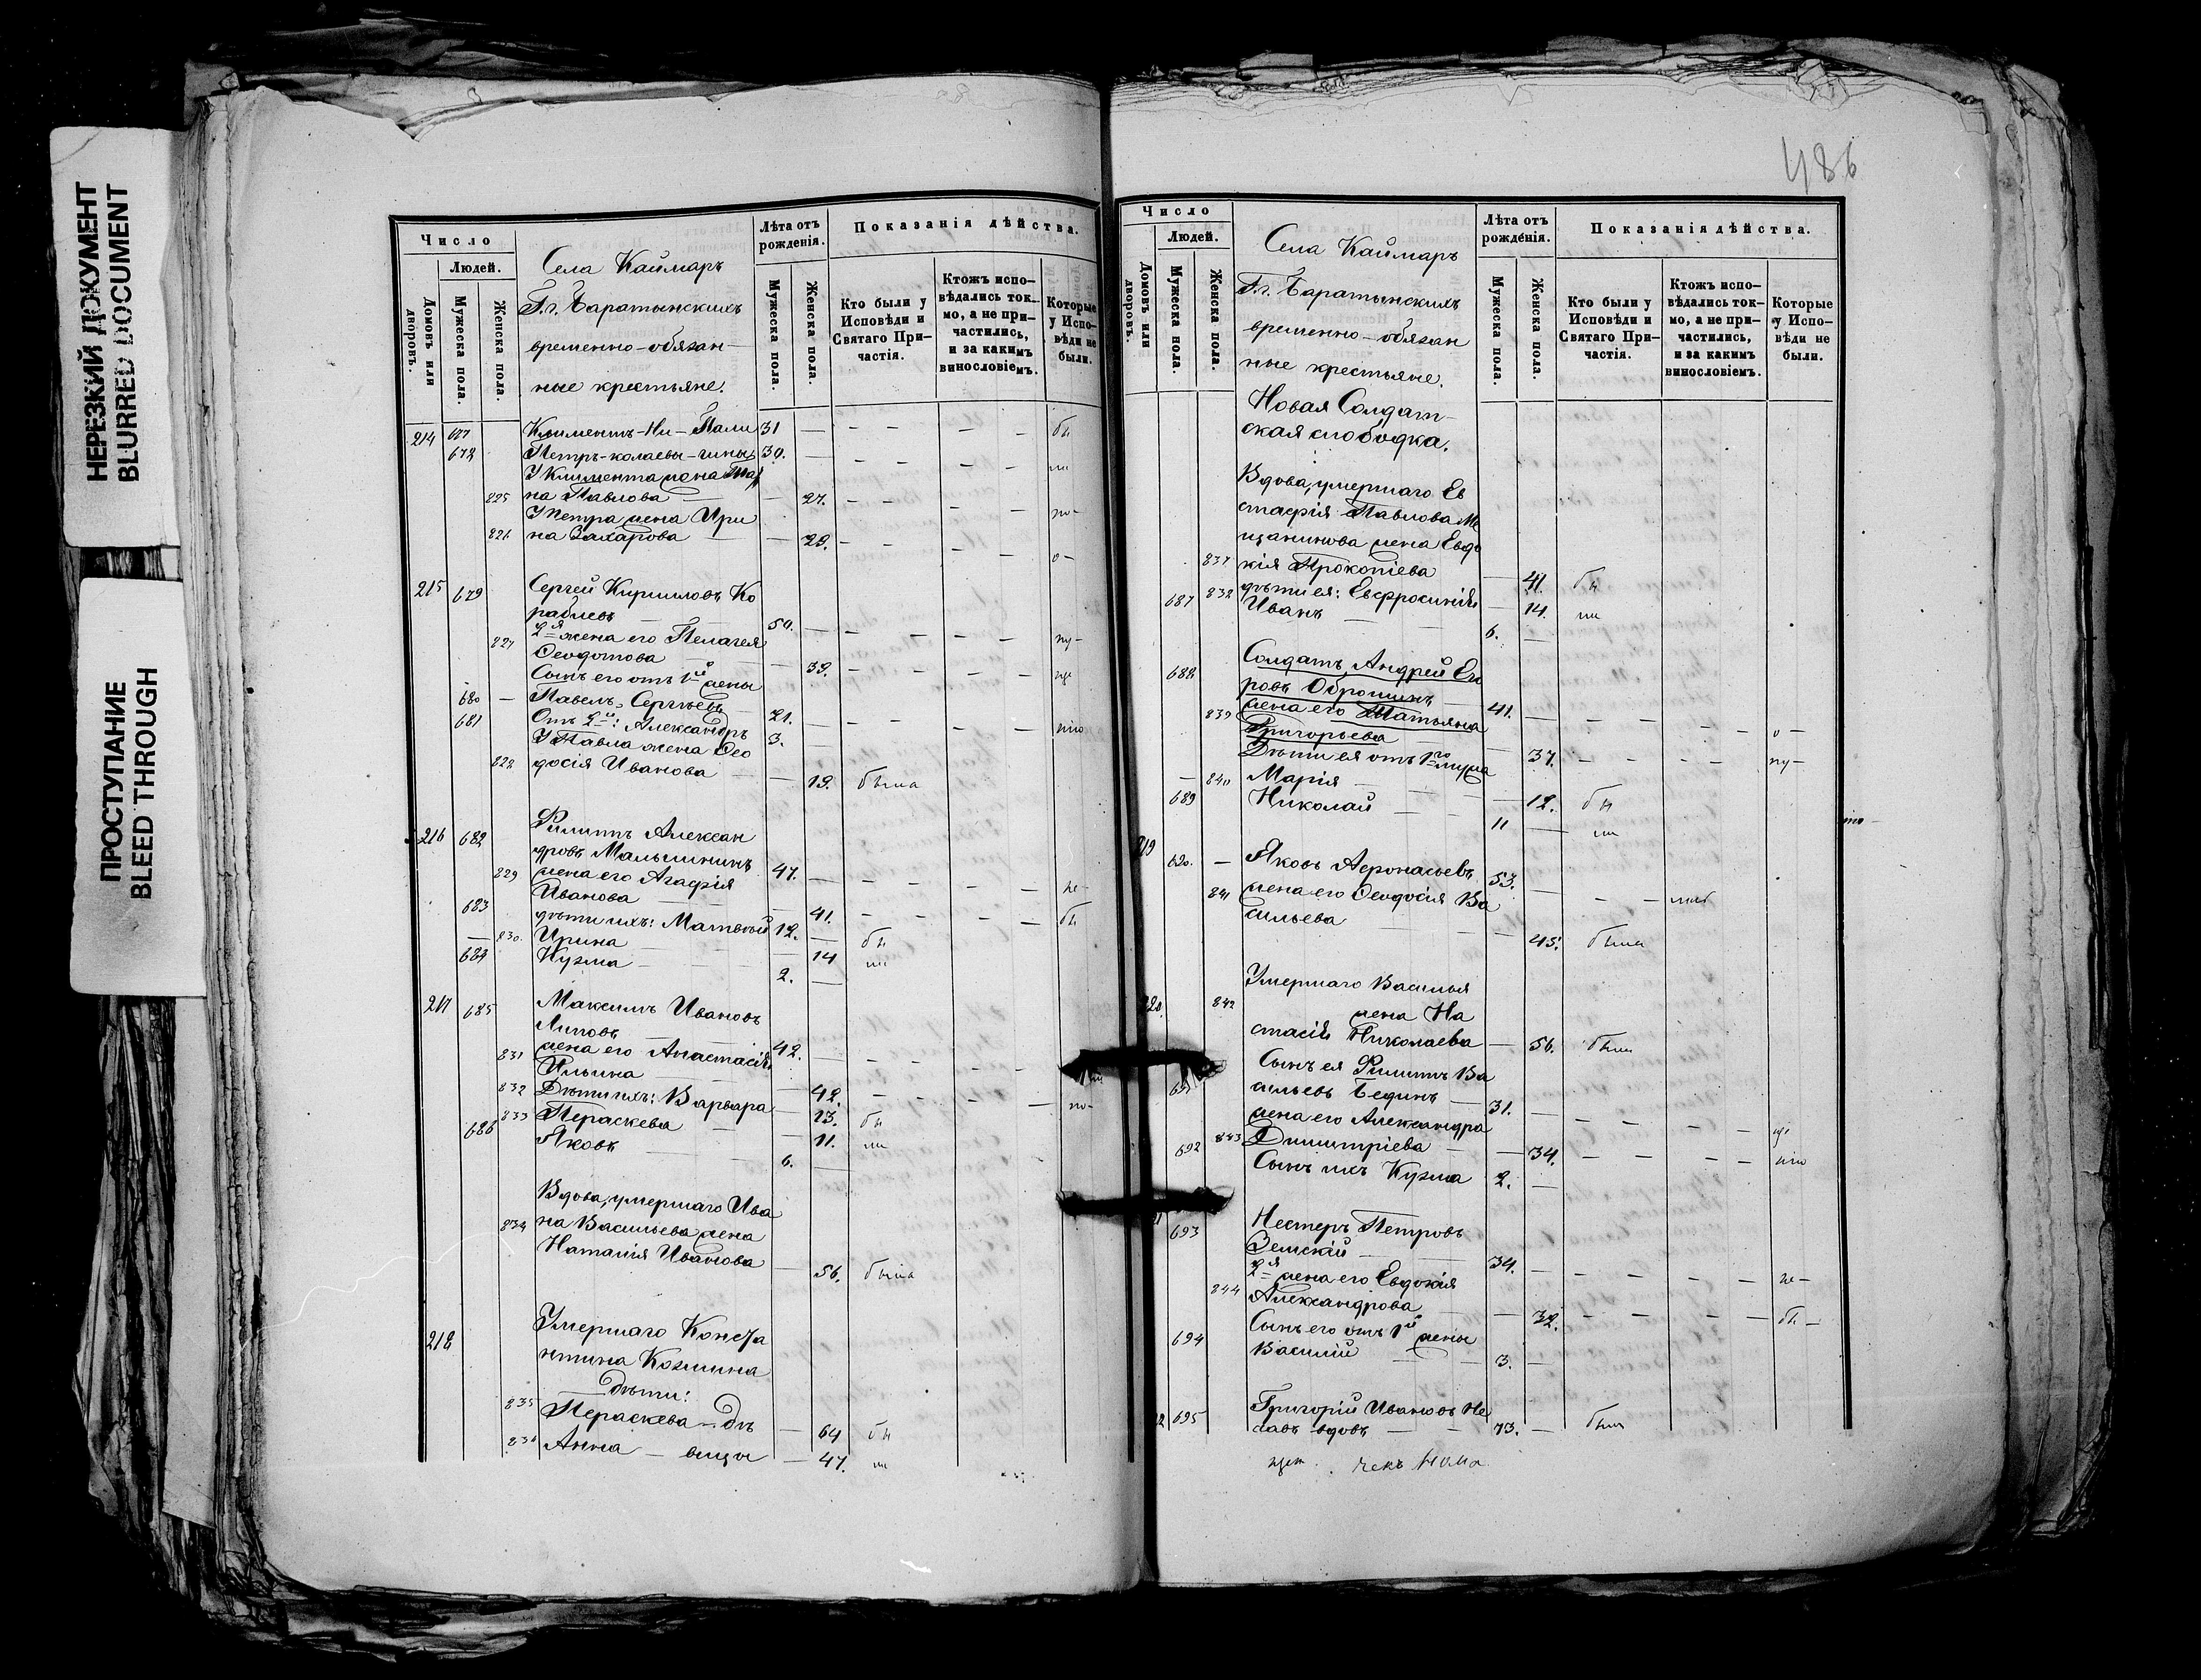 НЕРЕЗКИЙ ДОКУМЕНТ
BLURRED DOCUMENT
ПРОСТУПАНИЕ
BLEED THROUGH
Число
Людей.
Домовъ или дворовъ.
Мужеска пола.
Женска пола.
Села Каймаръ
Г.г. Баратынскихъ
временно-обязан-
ные крестьяне.
Лѣта отъ рожденія.
Мужеска пола.
Женска пола.
Показанія дѣйства.
Кто были у Исповѣди и Святаго При-частія.
Ктожъ испо-вѣдались ток-мо, а не при-частились, и за какимъ винословіемъ.
Которые у Испо-вѣди не были.
214 677 Климентъ-Ни- 31 — — — — — бы
678 Петръ-колаевы- 30. — — — — —
У Климента жена
825 на Павлова — — 27. — — — —
У Петра жена Ири
826 на Захарова — — 29. — — — —
215 679 Сергей Кирилловъ Ко
раблевъ — — 50. — — — — —
827 2я жена его Пелагея
Ѳеодотова — — 39. — — — —
Сынъ его отъ 1й жены
680 — Павелъ Сергѣевъ 21. — — — — —
681 Отъ 2й: Александръ 3. —
У Павла жена Ѳео
828 досія Иванова — — 19. была
216 682 Филиппъ Алексан
дровъ Мальшинъ 47. — — — — — не-
829 жена его Агафія
Иванова — — 41. — — — — бы
683 дѣти ихъ: Матвѣй 12. — бы
— 830. Ирина — — 14 ли
684 Кузма — — 2. —
217 685 Максимъ Ивановъ
Липовъ — — 42. — — — —
831 жена его Анастасія
Ильина — — 42. — — — —
832 Дѣти ихъ: Варвара — 13. бы
833 Пераскева — — 11. ли
686 Яковъ — — 6. —
Вдова, умершаго Ива
834 на Васильева жена
Наталія Иванова — 56. была
218 Умершаго Конста
нтина Козмина
Дѣти:
835 Пераскева — дѣ — 64 бы
836 Анна — вицы — 47. ли
486
Число
Людей.
Домовъ или дворовъ.
Мужеска пола.
Женска пола.
Села Каймаръ
Г.г. Баратынскихъ
временно-обязан
ные крестьяне.
Лѣта отъ рожденія.
Мужеска пола.
Женска пола.
Показанія дѣйства.
Кто были у Исповѣди и Святаго При-частія.
Ктожъ испо-вѣдались ток-мо, а не при-частились, и за какимъ винословіемъ.
Которые у Испо-вѣди не были.
Новая Солдат-
ская слободка.
Вдова, умершаго Ев
стафія Павлова Ме
щанинова жена Евдо
837 кія Прокопіева — 41. бы
838 дѣти ея: Евфросинія — 14. ли
687 Иванъ — — 6. —
688 Солдатъ Андрей Его
ровъ Оброшинъ — 41. — — — — —
839 жена его Татьяна
Григорьева — 37. — — — —
Дѣти ея отъ 1го мужа
— 840 Марія — — 12. бы
689 Николай — — 11 — ли
219 690. — Яковъ Афонасьевъ 53. — — —
841 жена его Ѳеодосія Ва
сильева — — 45. была
Умершаго Василья
220 842 жена На
стасія Николаева — 56. была
Сынъ ея Филиппъ Ва
691 сильевъ Бединъ — 31. — — — — —
жена его Александра
843 Димитріева — — 34. — — — —
692 Сынъ ихъ Кузма 2. —
693 Нестеръ Петровъ
Земскій — 34. — — — — — не-
2я жена его Евдокія
844 Александрова — — 32. — — — — бы —
Сынъ его отъ 1й жены
694 Василій — — 3. —
695 Григорій Ивановъ
вдовъ — — 73. — былъ